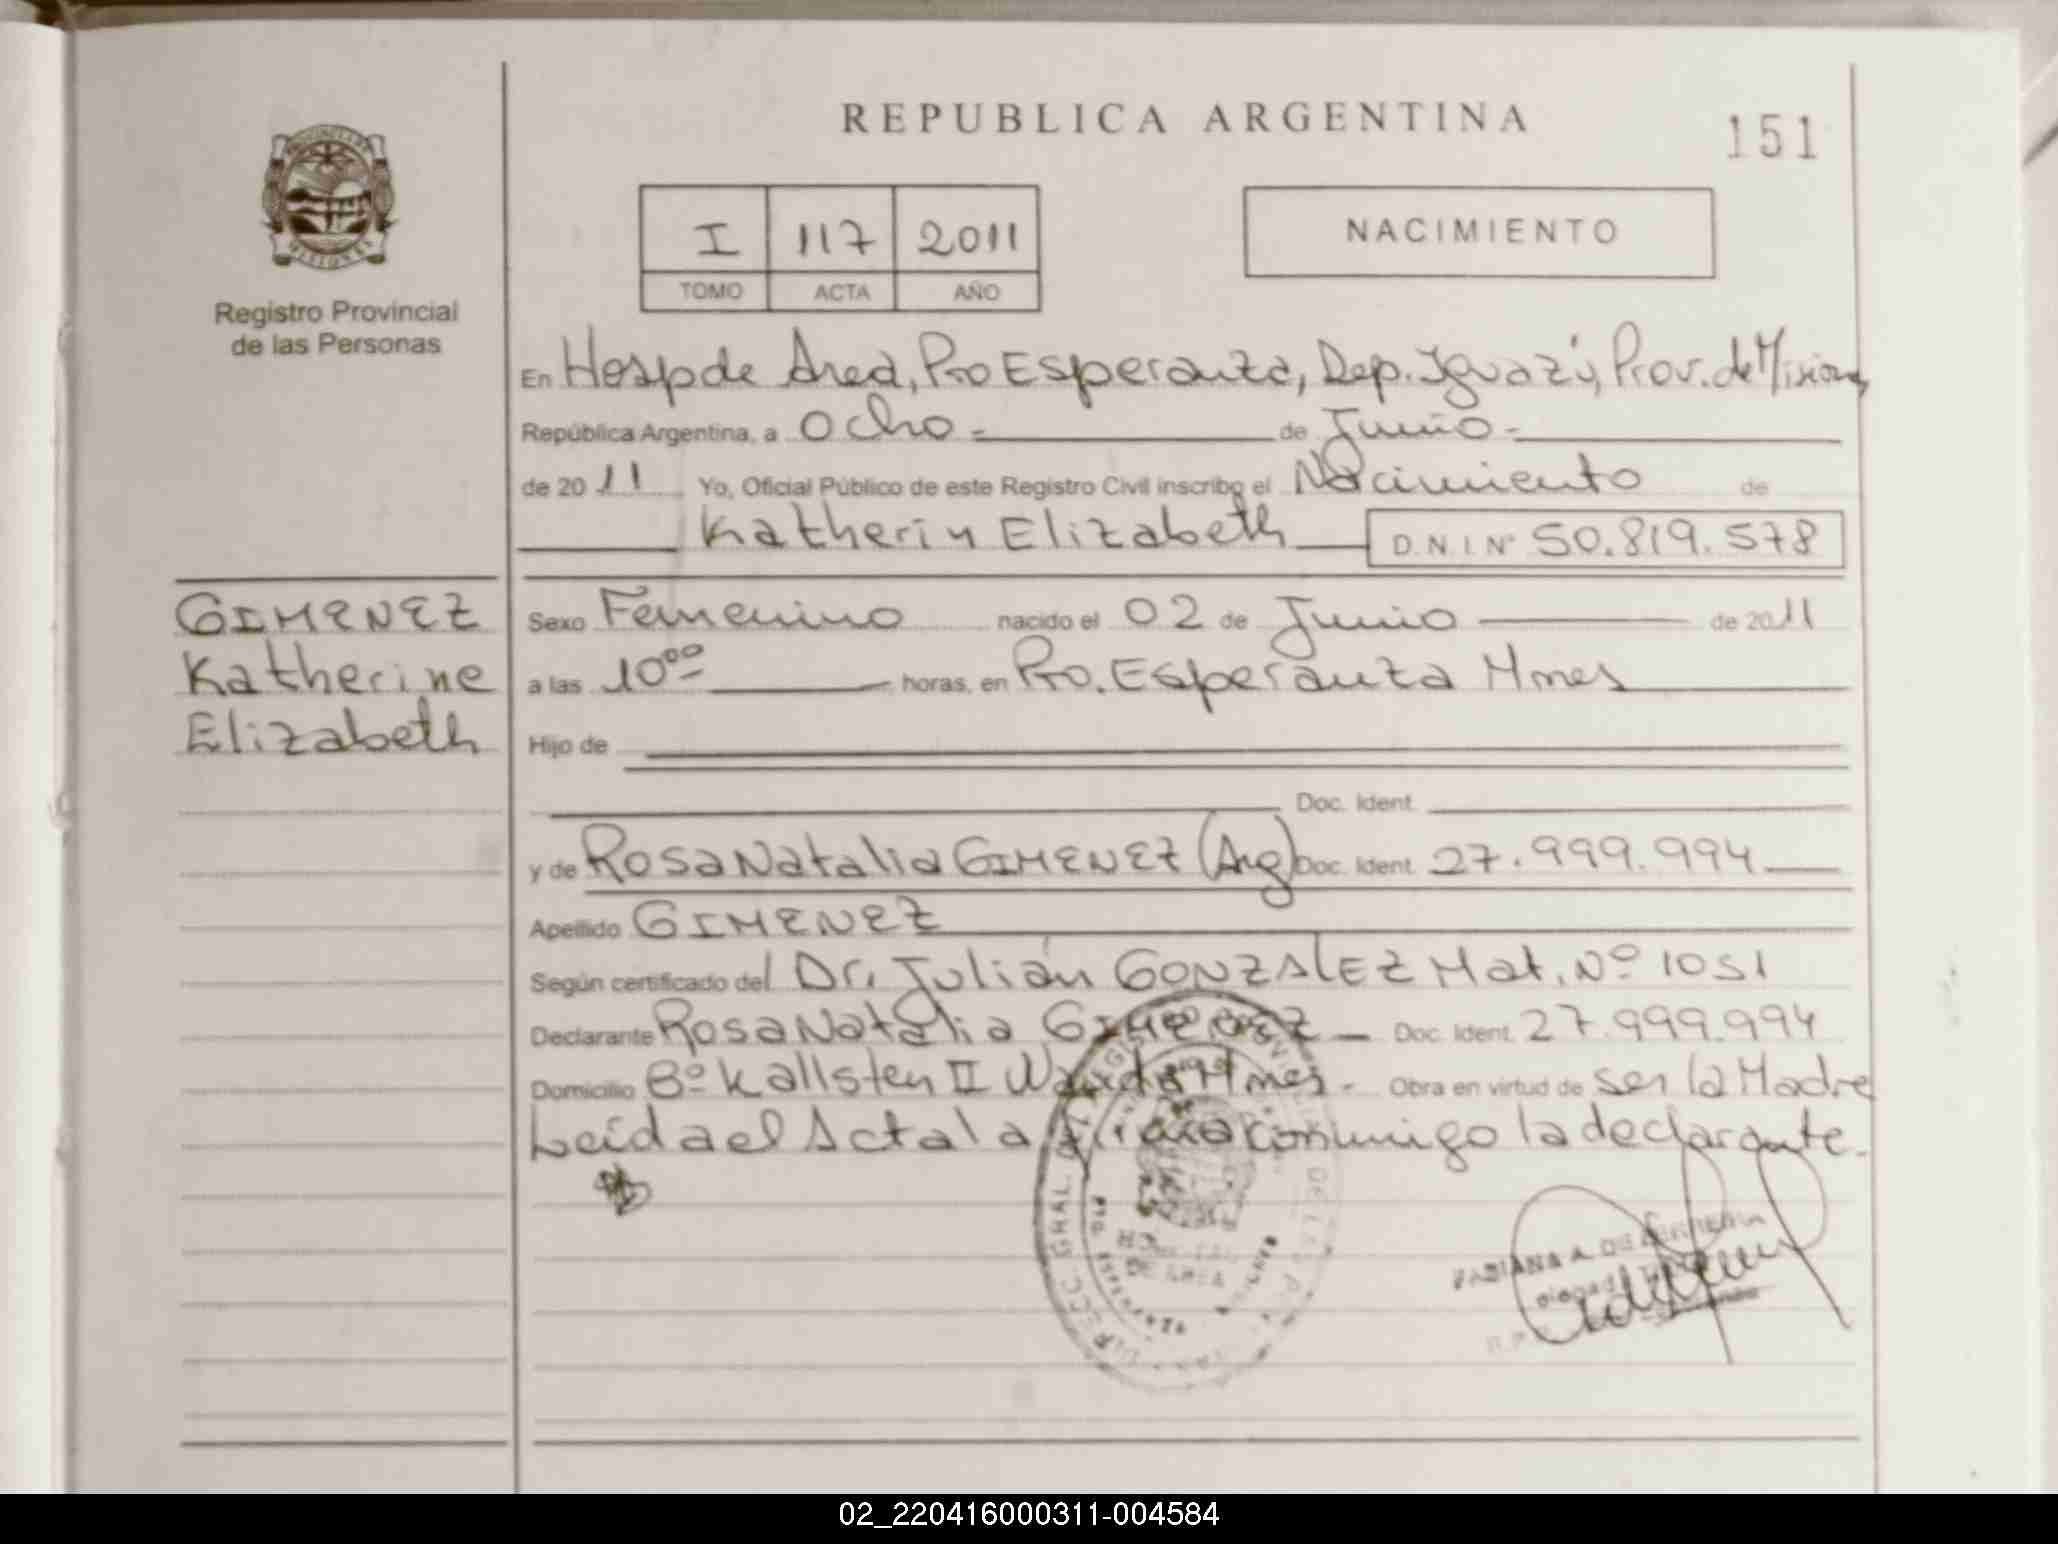 REPUBLICA ARGENTINA
151
I 117 2011
TOMO ACTA AÑO
NACIMIENTO
PROVINCIA DE
MISIONES
Registro Provincial
de las Personas
En Hosp de Area, Pto Esperanza, Dep. Iguazú, Prov. de Misiones,
República Argentina, a Ocho - de Junio -
de 2011 Yo, Oficial Público de este Registro Civil inscribo el Nacimiento de
Katherin Elizabeth D.N.I. Nº 50.819.578
GIMENEZ
Katherine
Elizabeth
Sexo Femenino nacido el 02 de Junio de 2011
a las 10ºº horas, en Pto. Esperanza Mnes
Hijo de
Doc. Ident.
y de Rosa Natalia GIMENEZ (Arg) Doc. Ident. 27.999.994
Apellido GIMENEZ
Según certificado del Dr. Julián GONZALEZ Mat. Nº 1051
Declarante Rosa Natalia GIMENEZ Doc. Ident. 27.999.994
Domicilio Bº Kallsten II Wanda Mnes - Obra en virtud de ser la Madre
Leída el Acta la firma conmigo la declarante.
FABIANA A. DE
02_220416000311-004584